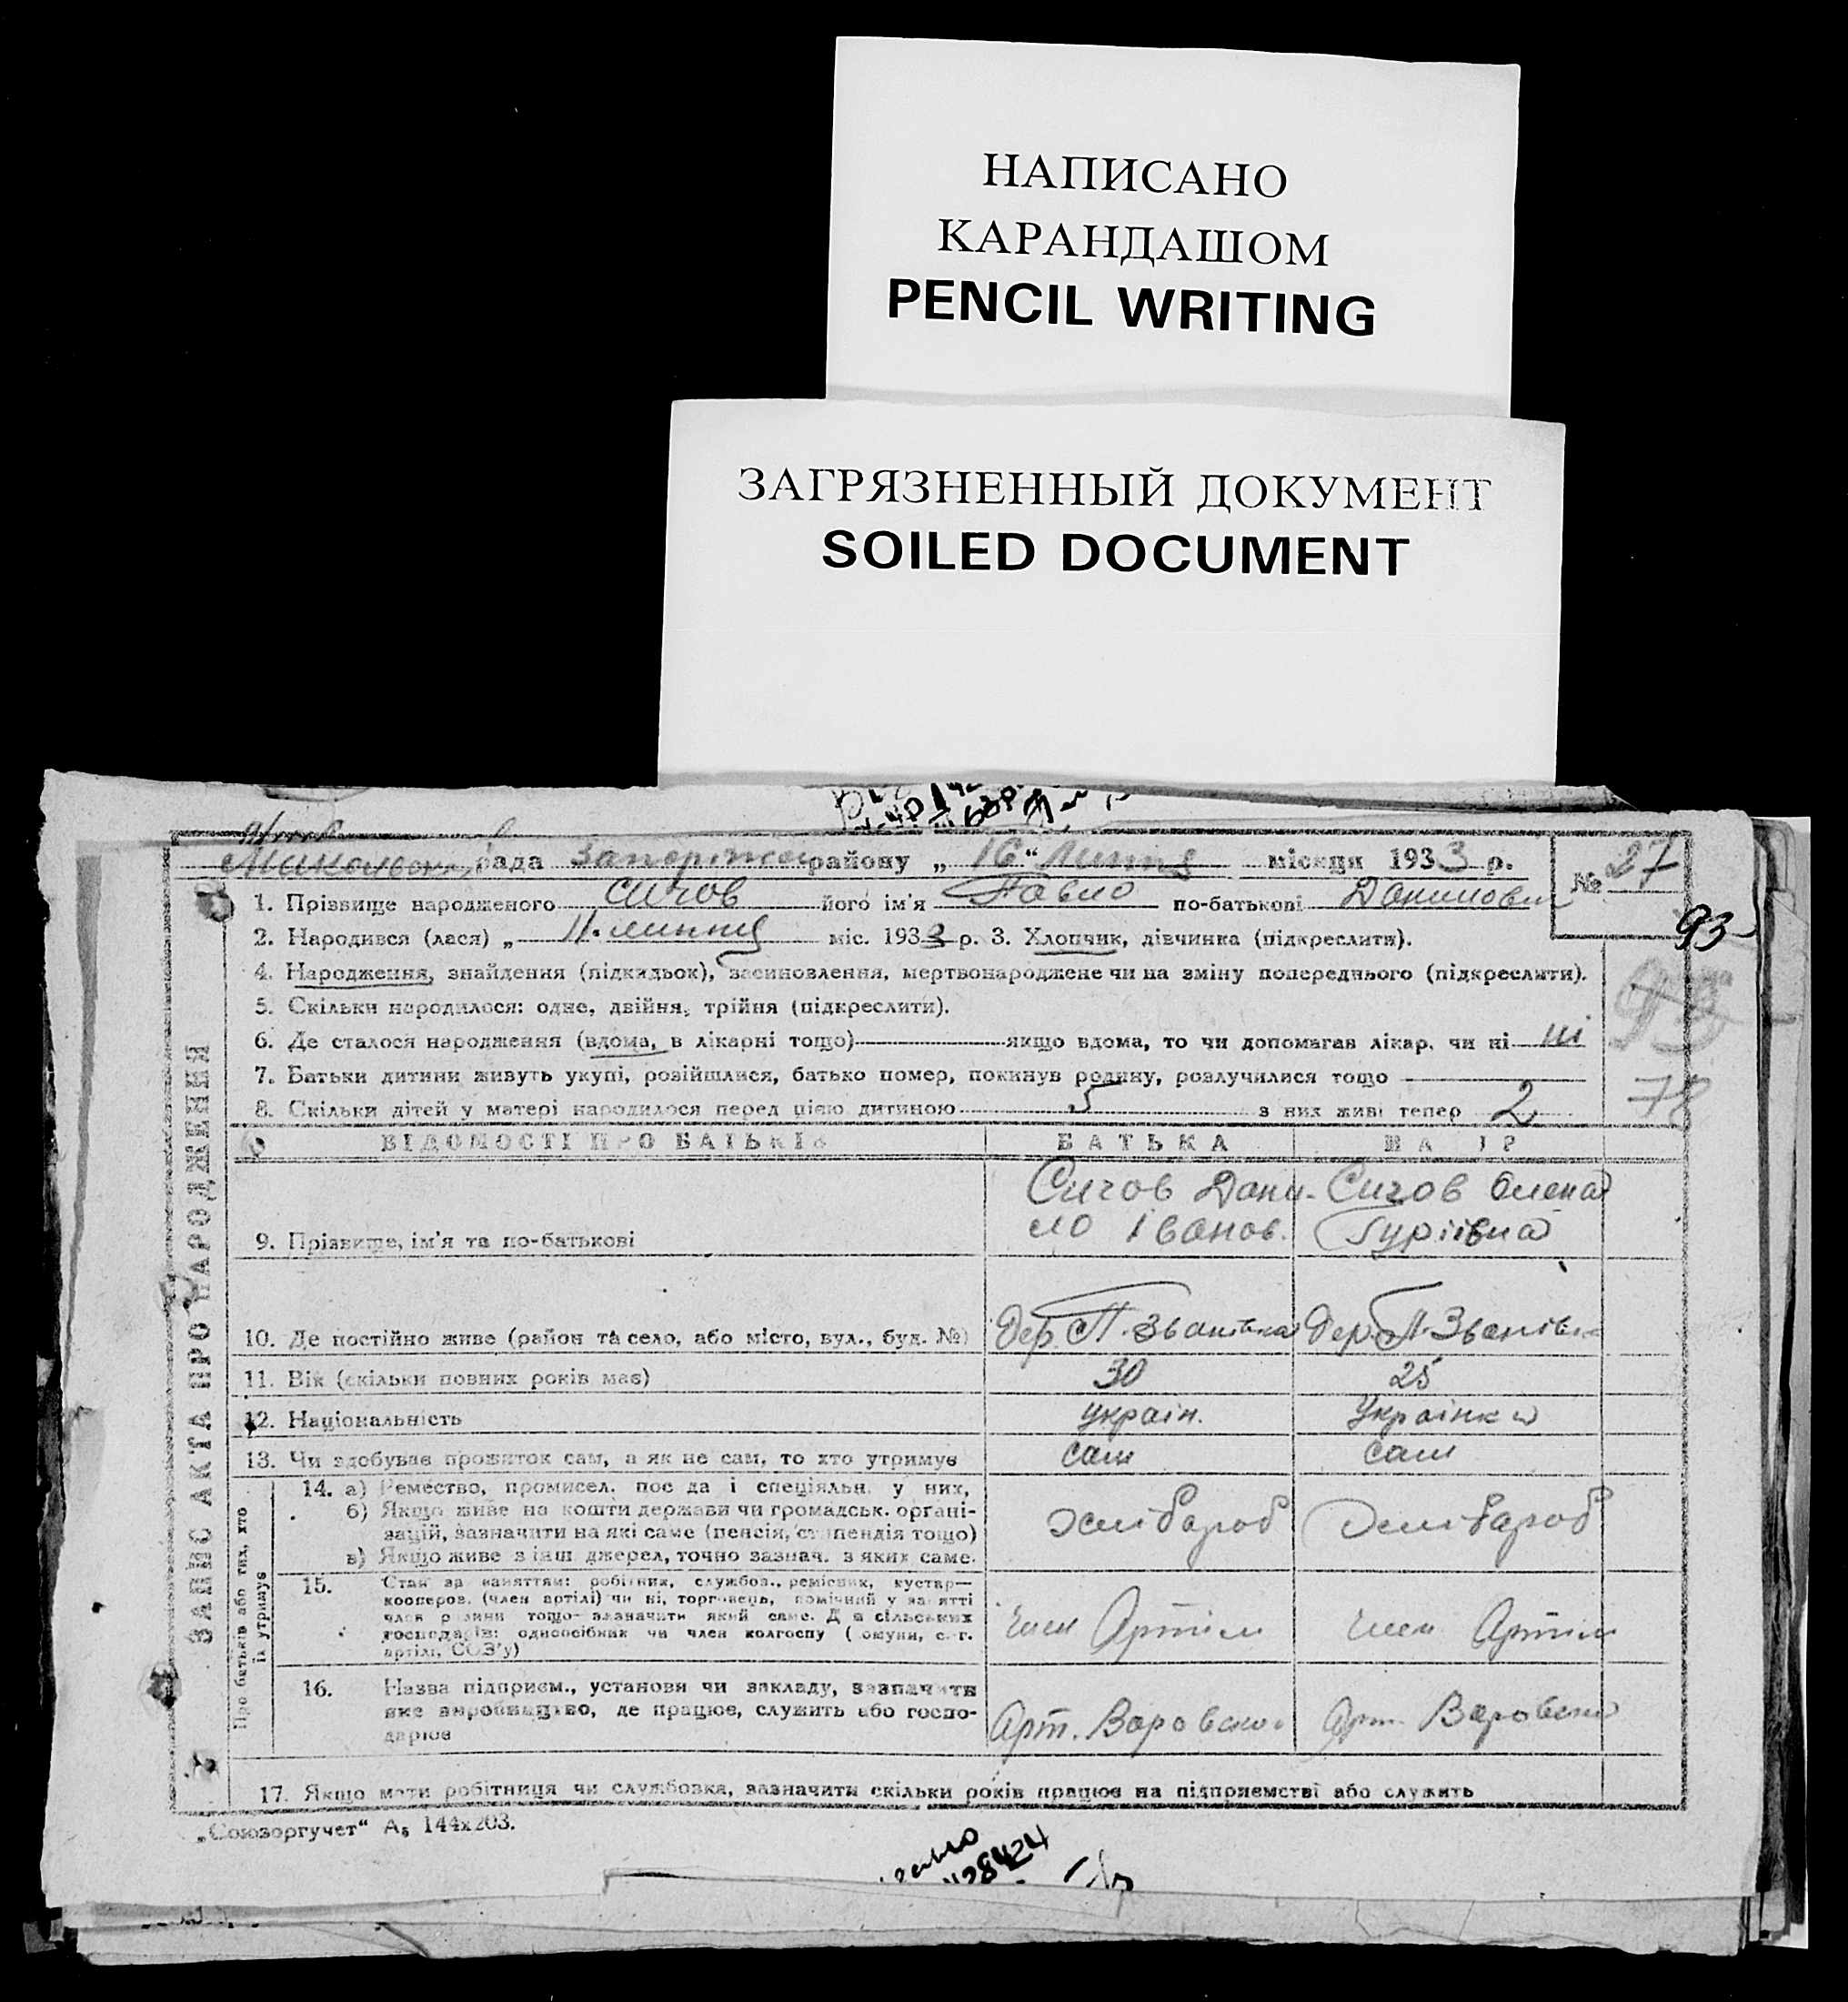 НАПИСАНО
КАРАНДАШОМ
PENCIL WRITING
ЗАГРЯЗНЕННЫЙ ДОКУМЕНТ
SOILED DOCUMENT
рада району „ 16 “ місяця 1933 р. № 27
1. Прізвище народженого Сичов його ім'я Павло по-батькові Данилович
93
2. Народився (лася) „ міс. 193 р. 3. Хлопчик, дівчинка (підкреслити).
4. Народження, знайдення (підкидьок), засиновлення, мертвонароджене чи на зміну попереднього (підкреслити).
5. Скільки народилося: одне, двійня, трійня (підкреслити).
6. Де сталося народження (вдома, в лікарні тощо) якщо вдома, то чи допомагав лікар, чи ні ні
7. Батьки дитини живуть укупі, розійшлися, батько помер, покинув родину, розлучилися тощо
78
8. Скільки дітей у матері народилося перед цією дитиною 5 з них живі тепер 2
ЗАПИС АКТА ПРО НАРОДЖЕННЯ
ВІДОМОСТІ ПРО БАТЬКІВ БАТЬКА
Сичов Дани- Сичов Олена
ло Іванов. Гуріївна
9. Прізвище, ім'я та по-батькові
10. Де постійно живе (район та село, або місто, вул., буд. №) Дер. П. Званівка Дер. П. Званівка
11. Вік (скільки повних років має) 30 25
12. Національність україн. Українка
13. Чи здобуває прожиток сам, а як не сам, то хто утримує сам сам
Про батьків або тих, хто
їх утримує
14. а) Ремество, промисел, посада і спеціяльн. у них,
б) Якщо живе на кошти держави чи громадськ. органі-
зацій, зазначити на які саме (пенсія, стипендія тощо)
в) Якщо живе з інш. джерел, точно зазнач. з яких саме.
Хлібороб Хлібороб
15. Стан за заняттям: робітник, службов., ремісник, кустар—
кооперов. (член артілі) чи ні, торговець, помічний у занятті
член родини тощо—зазначити який саме. Для сільських
господарів: одноосібник чи член колгоспу (комуни, с.-г.
артілі, СОЗ'у)
член Артіли член Артіли
16. Назва підприєм., установи чи закладу, зазначити
яке виробництво, де працює, служить або госпо-
дарює
Арт. Арт.
17. Якщо мати робітниця чи службовка, зазначити скільки років працює на підприємстві або служить
„Союзоргучет“ А5 144х203.